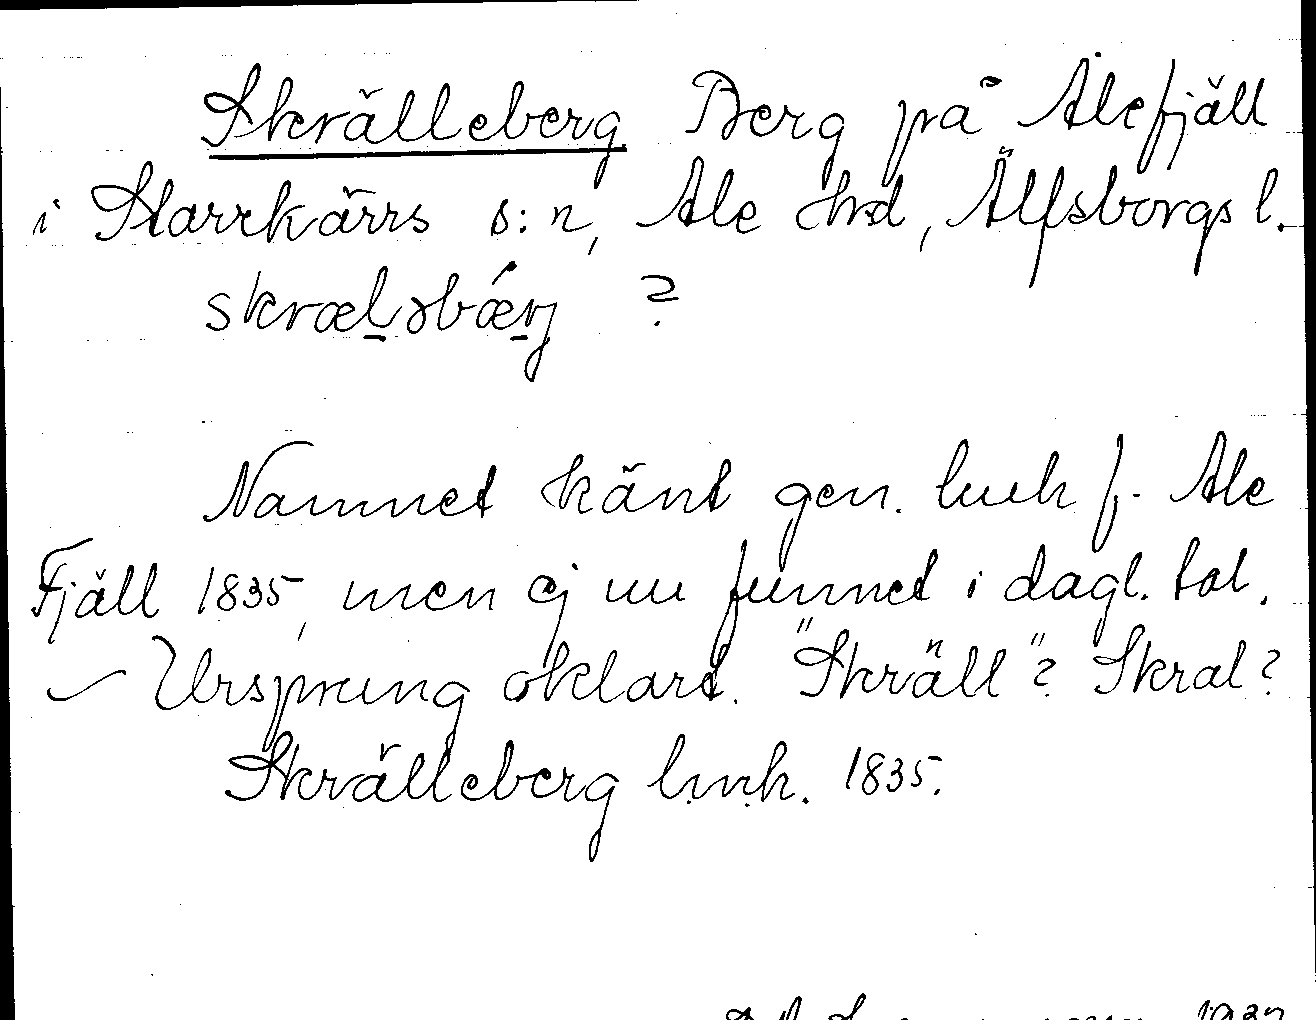 Skrälleberg Berg på Alefjäll
i Starrkärrs s:n, Ale hrd, Älfsborgs l.
skræləbǽrj ?
Namnet känt gen. lmh f. Ale
Fjäll 1835, men ej nu funnet i dagl. tal.
— Ursprung oklart. "Skräll"? Skral?
Skrälleberg lmh. 1835.